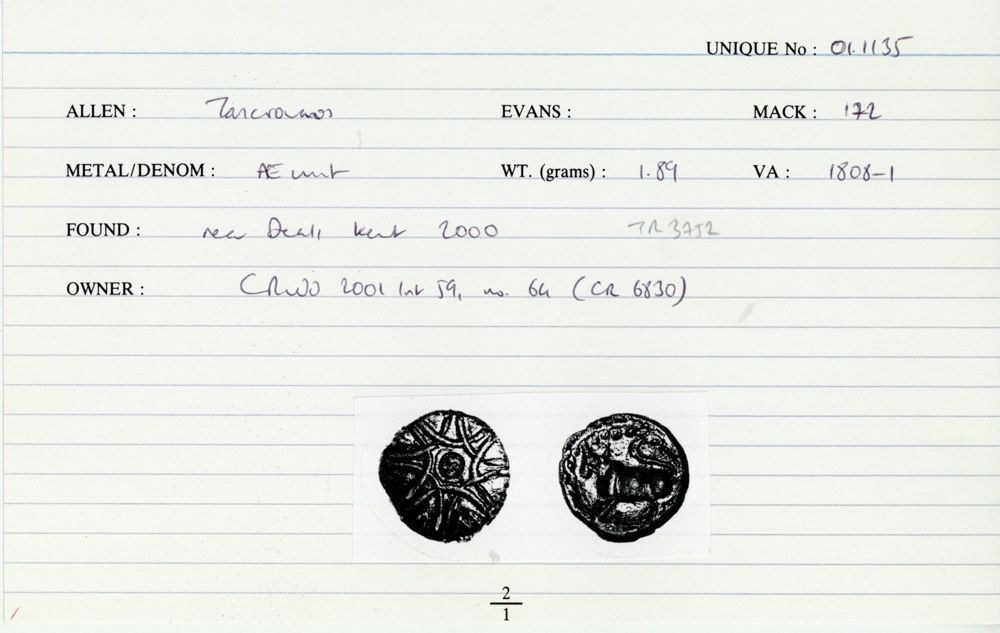 UNIQUE No : 01.1135
ALLEN : Tasciovanos EVANS : MACK : 172
METAL/DENOM : Æ unit WT. (grams) : 1.89 VA : 1808-1
FOUND : near Deal, Kent 2000 TR 3752
OWNER : CRWO 2001 list 59, no. 64 (CR 6830)
2
1